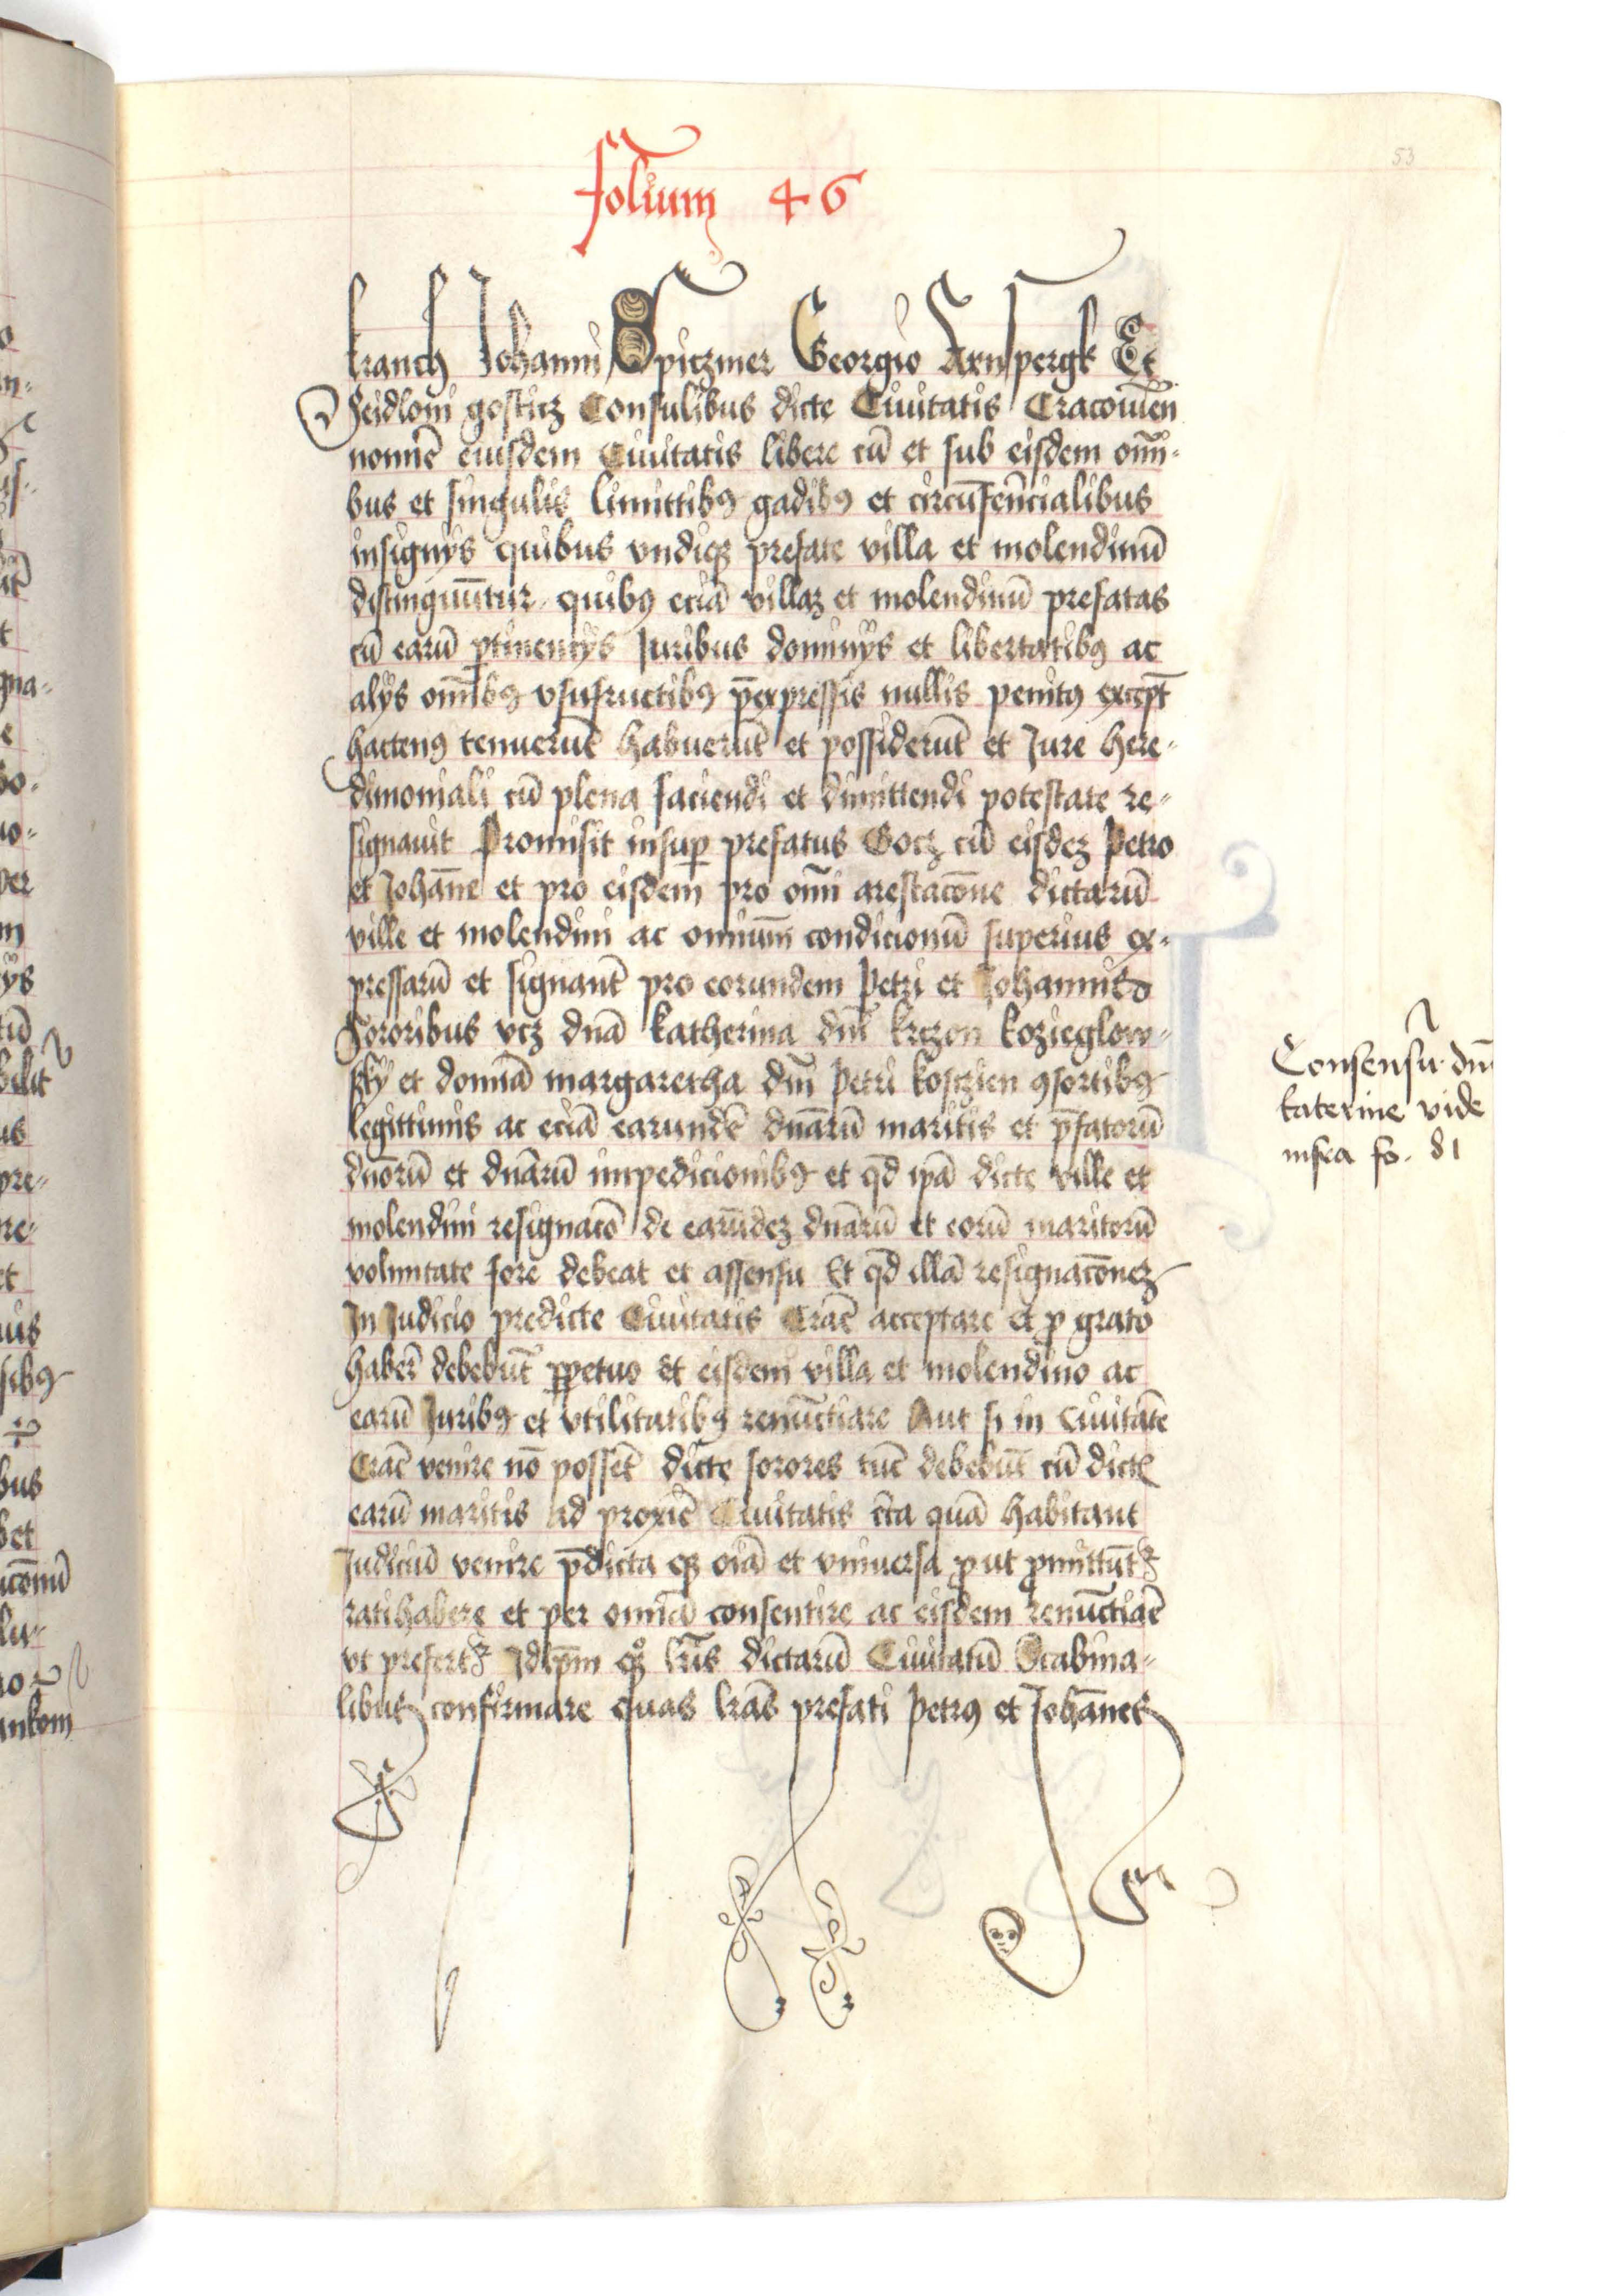 folium 46
53
kranch Johanni Spiczmer Georgio Arnspergk Et
Seidloni gosticz Consulibus dicte Ciuitatis Cracouien̄
nomīe eiusdem Ciuitatis libere cū et sub eisdem omī-
bus et singulis limittibꝯ gadibꝯ et circūferēncialibus
insignijs quibus vndiqꝫ prefate villa et molendinū
distinguūtur quibꝯ eciā villaꝫ et molendinū prefatas
cū earū ꝑtinencijs Juribus dominijs et libertatibꝯ ac
alijs om̄ibꝯ vsufructibꝯ p̄expressis nullis penitꝯ except̄
hactenꝯ tenuerūt habuerūt et possiderūt et Jure here-
dimoniali cū plena faciendi et dimittendi potestate re-
signauit Promisit insuꝑ prefatus Gocz cū eisdeꝫ Petro
et Johāne et pro eisdem pro om̄i arestacōne dictarū
ville et molendini ac omniūm condicionū superius ex-
pressarū et signant̄ pro eorundem Petri et Johannis
Sororibus vcꝫ dnā katherina dn̄i krczon kozieglow-
sky et dominā margaretha dn̄i Petri kosczien ꝯsortibꝯ
legittimis ac eciā earundē dnārū maritis et p̄fatorū
dnorū et dnārū impedicionibꝯ et qd̄ ipā dicte ville et
molendini resignacō de earūdeꝫ dnārū et eorū maritorū
voluntate fore debeat et assensu Et qd̄ illā resignacōneꝫ
In Judicio predicte Ciuitatis Crac̄ acceptare et ꝓ grato
haber̄ debebūt ꝑpetuo et eisdem villa et molendino ac
earū Juribꝯ et vtilitatibꝯ renūctiare Aut si in Ciuitatē
Crac̄ venire nō possēt dicte sorores tūc debebūt cū dictꝭ
earū maritis ad proxiē Ciuitatis c̄ta quā habitant
Judiciū venire p̄dicta qꝫ oīā et vniuersa ꝓut ꝓmittūtꝝ
ratihabere et per omnīa consentire ac eisdem renūctiar̄
vt prefertꝝ Idip̄m qꝫ lrīs dictarū Ciuitatū Scabina-
libus confirmare quas lrās prefati Petrꝯ et Johānes
Consensū dn̄e
katerine vide
infra fo. 81